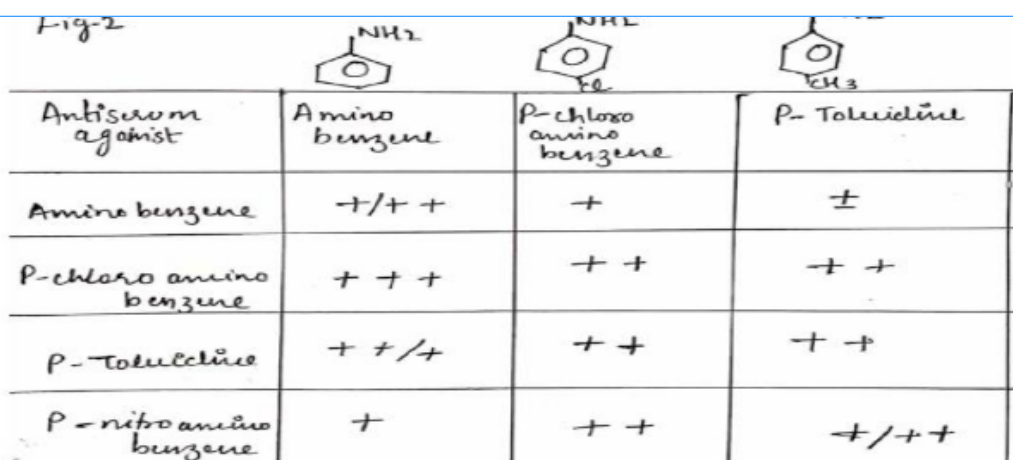 Fig-2
NH2
NH2
Cl
CH3
Antiserum against
Amino benzene
P-chloro amino benzene
P- Toluidine
Amino benzene
+/+ +
+
±
P-chloro amino benzene
+ + +
+ +
+ +
P- Toluidine
+ +/+
+ +
+ +
P - nitro amino benzene
+
+ +
+/++